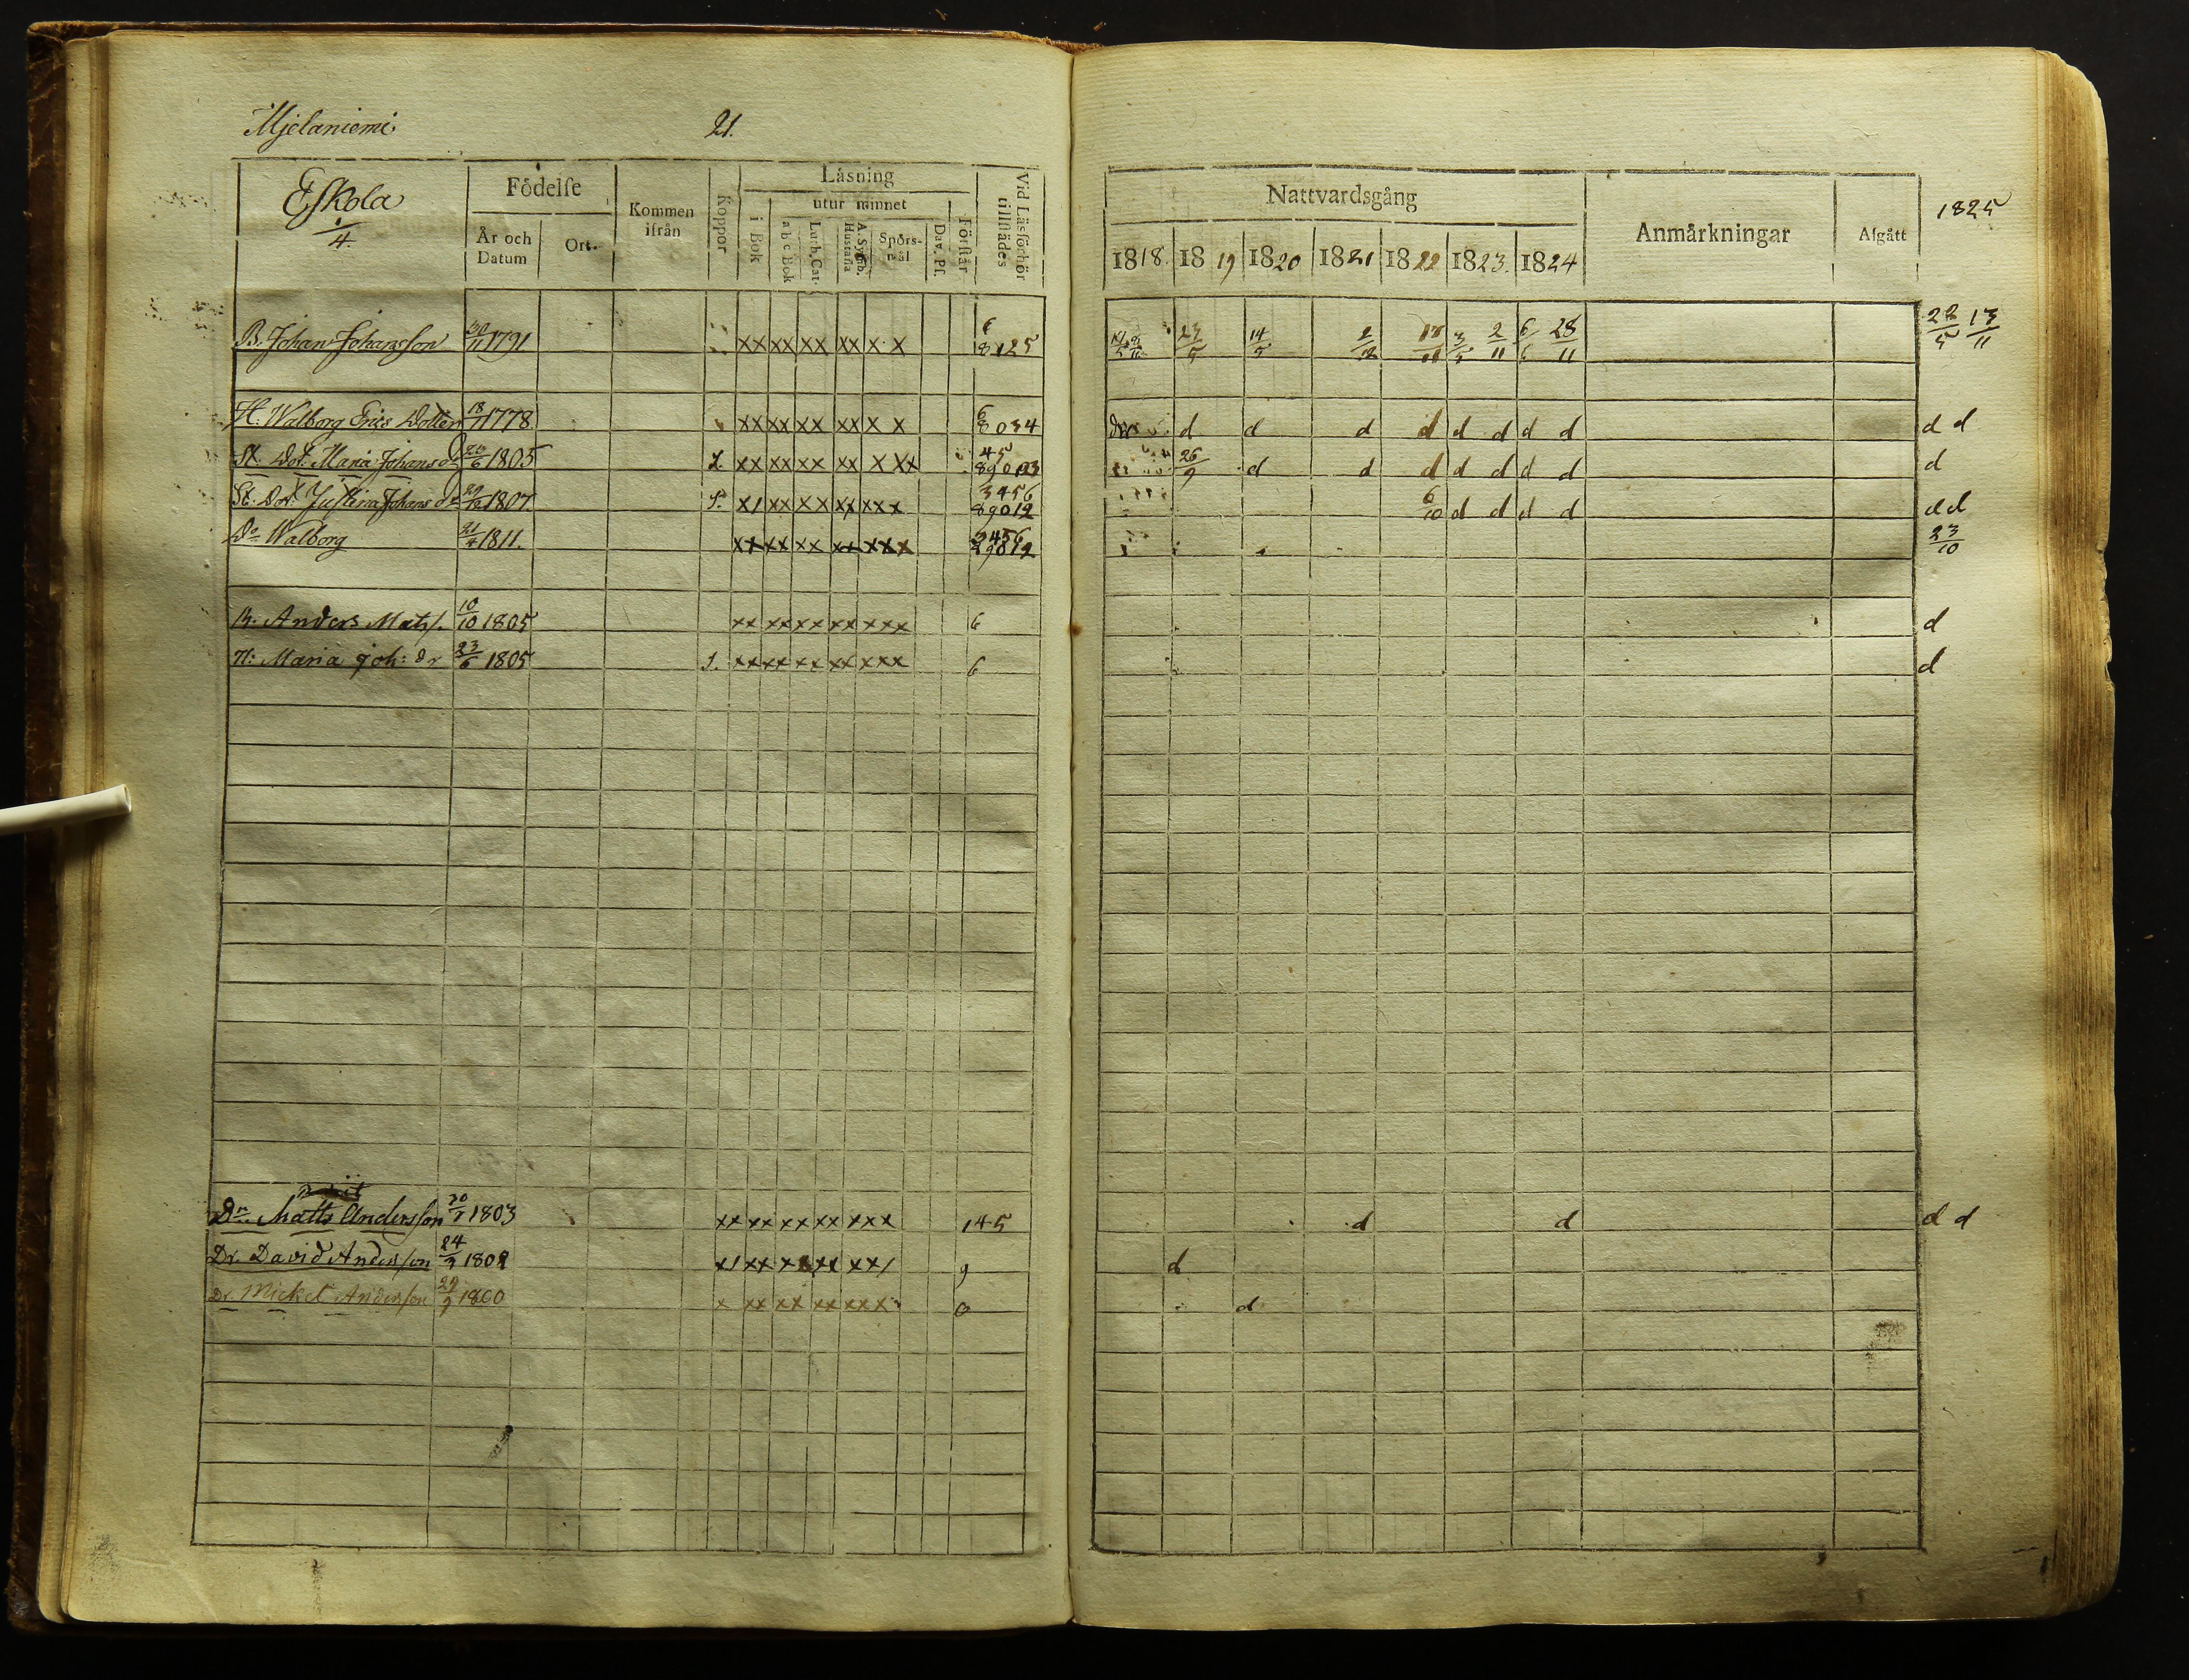 Mjelaniemi
21.
Eskola
1/4
Födelse
År och Datum
Ort.
Kommen ifrån
Koppor
Läsning
i Bok
utur minnet
a b c Bok
Luth. Cat.
A. Symb. Hustafla
Spörsmål
Dav. Ps.
Förstår
Vid Läsförhör tillstädes
B. Johan Johansson 30/11 1791. xx xx xx xx x x 6 8125
H. Walborg Erics Dotter 18/11 1778 xx xx xx xx x x 6 8034
St. Dot. Maria Johans dr 23/6 1805 xx xx xx xx x xx 45
St. Dot. Justina Johans dr 29/12 1807 S. x/ xx xx xx xxx 3456 89012
Do Walborg 1811. xx xx xx xx xxx 3456
B. Anders Mats. 10/10 1805 xx xx xx xx xxx 6
H: Maria Joh: dr 23/6 1805 xx xx xx xx xxx 6
Dn. Matts Andersson 1803 xx xx xx xx xxx 145
Dr. David Andersson 24/3 xx xx/ 9
Dr. Mickel Andersson 29/9 1800 x xx xx xx xxx 0
Nattvardsgång
1818. 1819 1820 1821 1822 1823. 1824
Anmärkningar
Afgått
1825
23/5 14/5 3/5 2/11 6/6 28/11 13/11
d d d d d d d d d d
26/9 d d d d d d d d
6/10 d d d d d d
23/10
d
d
d d d d
d
d